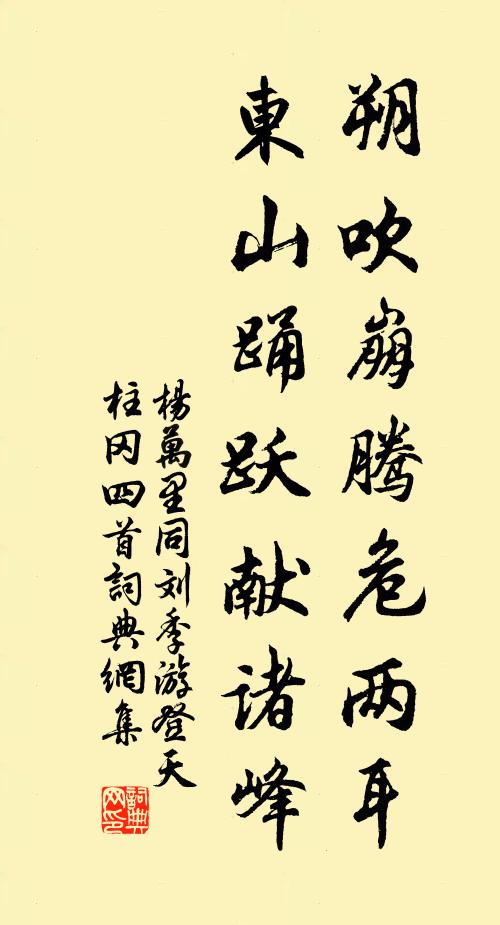 朔吹崩腾危两耳
東山踊跃献诸峰
楊萬里同刘季游登天
柱冈四首詞典網集
詞典
网印